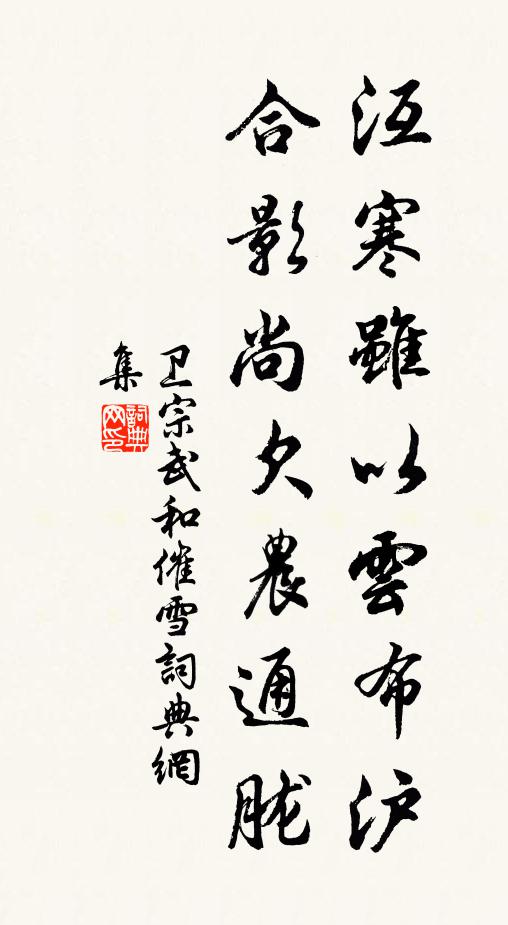 沍寒雖以雲布沪
合影尚欠農通胧
卫宗武和催雪詞典網
集
詞典网印